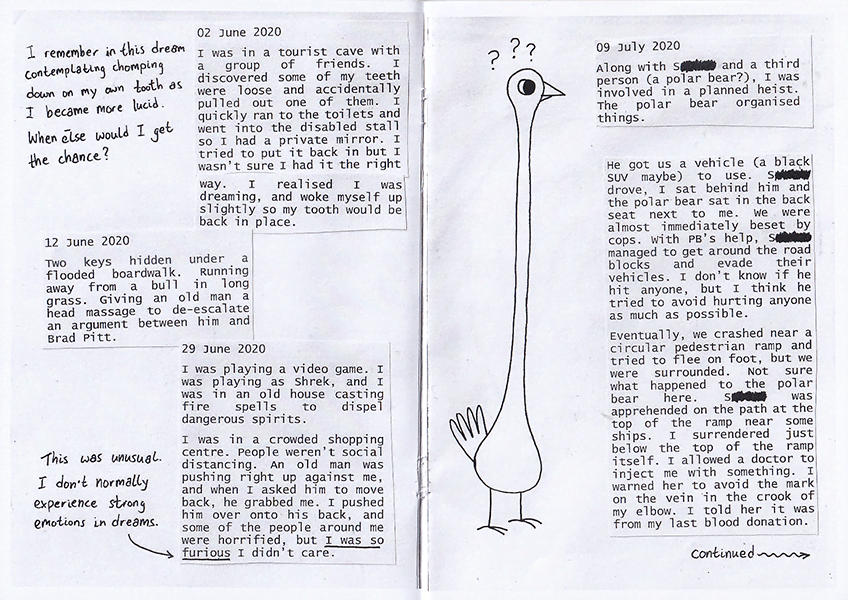 I remember in this dream
contemplating chomping
down on my own tooth as
I became more lucid.
When else would I get
the chance?
02 June 2020
I was in a tourist cave with
a group of friends. I
discovered some of my teeth
were loose and accidentally
pulled out one of them. I
quickly ran to the toilets and
went into the disabled stall
so I had a private mirror. I
tried to put it back in but I
wasn't sure I had it the right
way. I realised I was
dreaming, and woke myself up
slightly so my tooth would be
back in place.
12 June 2020
Two keys hidden under a
flooded boardwalk. Running
away from a bull in long
grass. Giving an old man a
head massage to de-escalate
an argument between him and
Brad Pitt.
29 June 2020
I was playing a video game. I
was playing as Shrek, and I
was in an old house casting
fire spells to dispel
dangerous spirits.
I was in a crowded shopping
centre. People weren't social
distancing. An old man was
pushing right up against me,
and when I asked him to move
back, he grabbed me. I pushed
him over onto his back, and
some of the people around me
were horrified, but I was so
furious I didn't care.
This was unusual.
I don't normally
experience strong
emotions in dreams.
? ? ?
09 July 2020
Along with S and a third
person (a polar bear?), I was
involved in a planned heist.
The polar bear organised
things.
He got us a vehicle (a black
SUV maybe) to use. S
drove, I sat behind him and
the polar bear sat in the back
seat next to me. We were
almost immediately beset by
cops. With PB's help, S
managed to get around the road
blocks and evade their
vehicles. I don't know if he
hit anyone, but I think he
tried to avoid hurting anyone
as much as possible.
Eventually, we crashed near a
circular pedestrian ramp and
tried to flee on foot, but we
were surrounded. Not sure
what happened to the polar
bear here. S was
apprehended on the path at the
top of the ramp near some
ships. I surrendered just
below the top of the ramp
itself. I allowed a doctor to
inject me with something. I
warned her to avoid the mark
on the vein in the crook of
my elbow. I told her it was
from my last blood donation.
continued